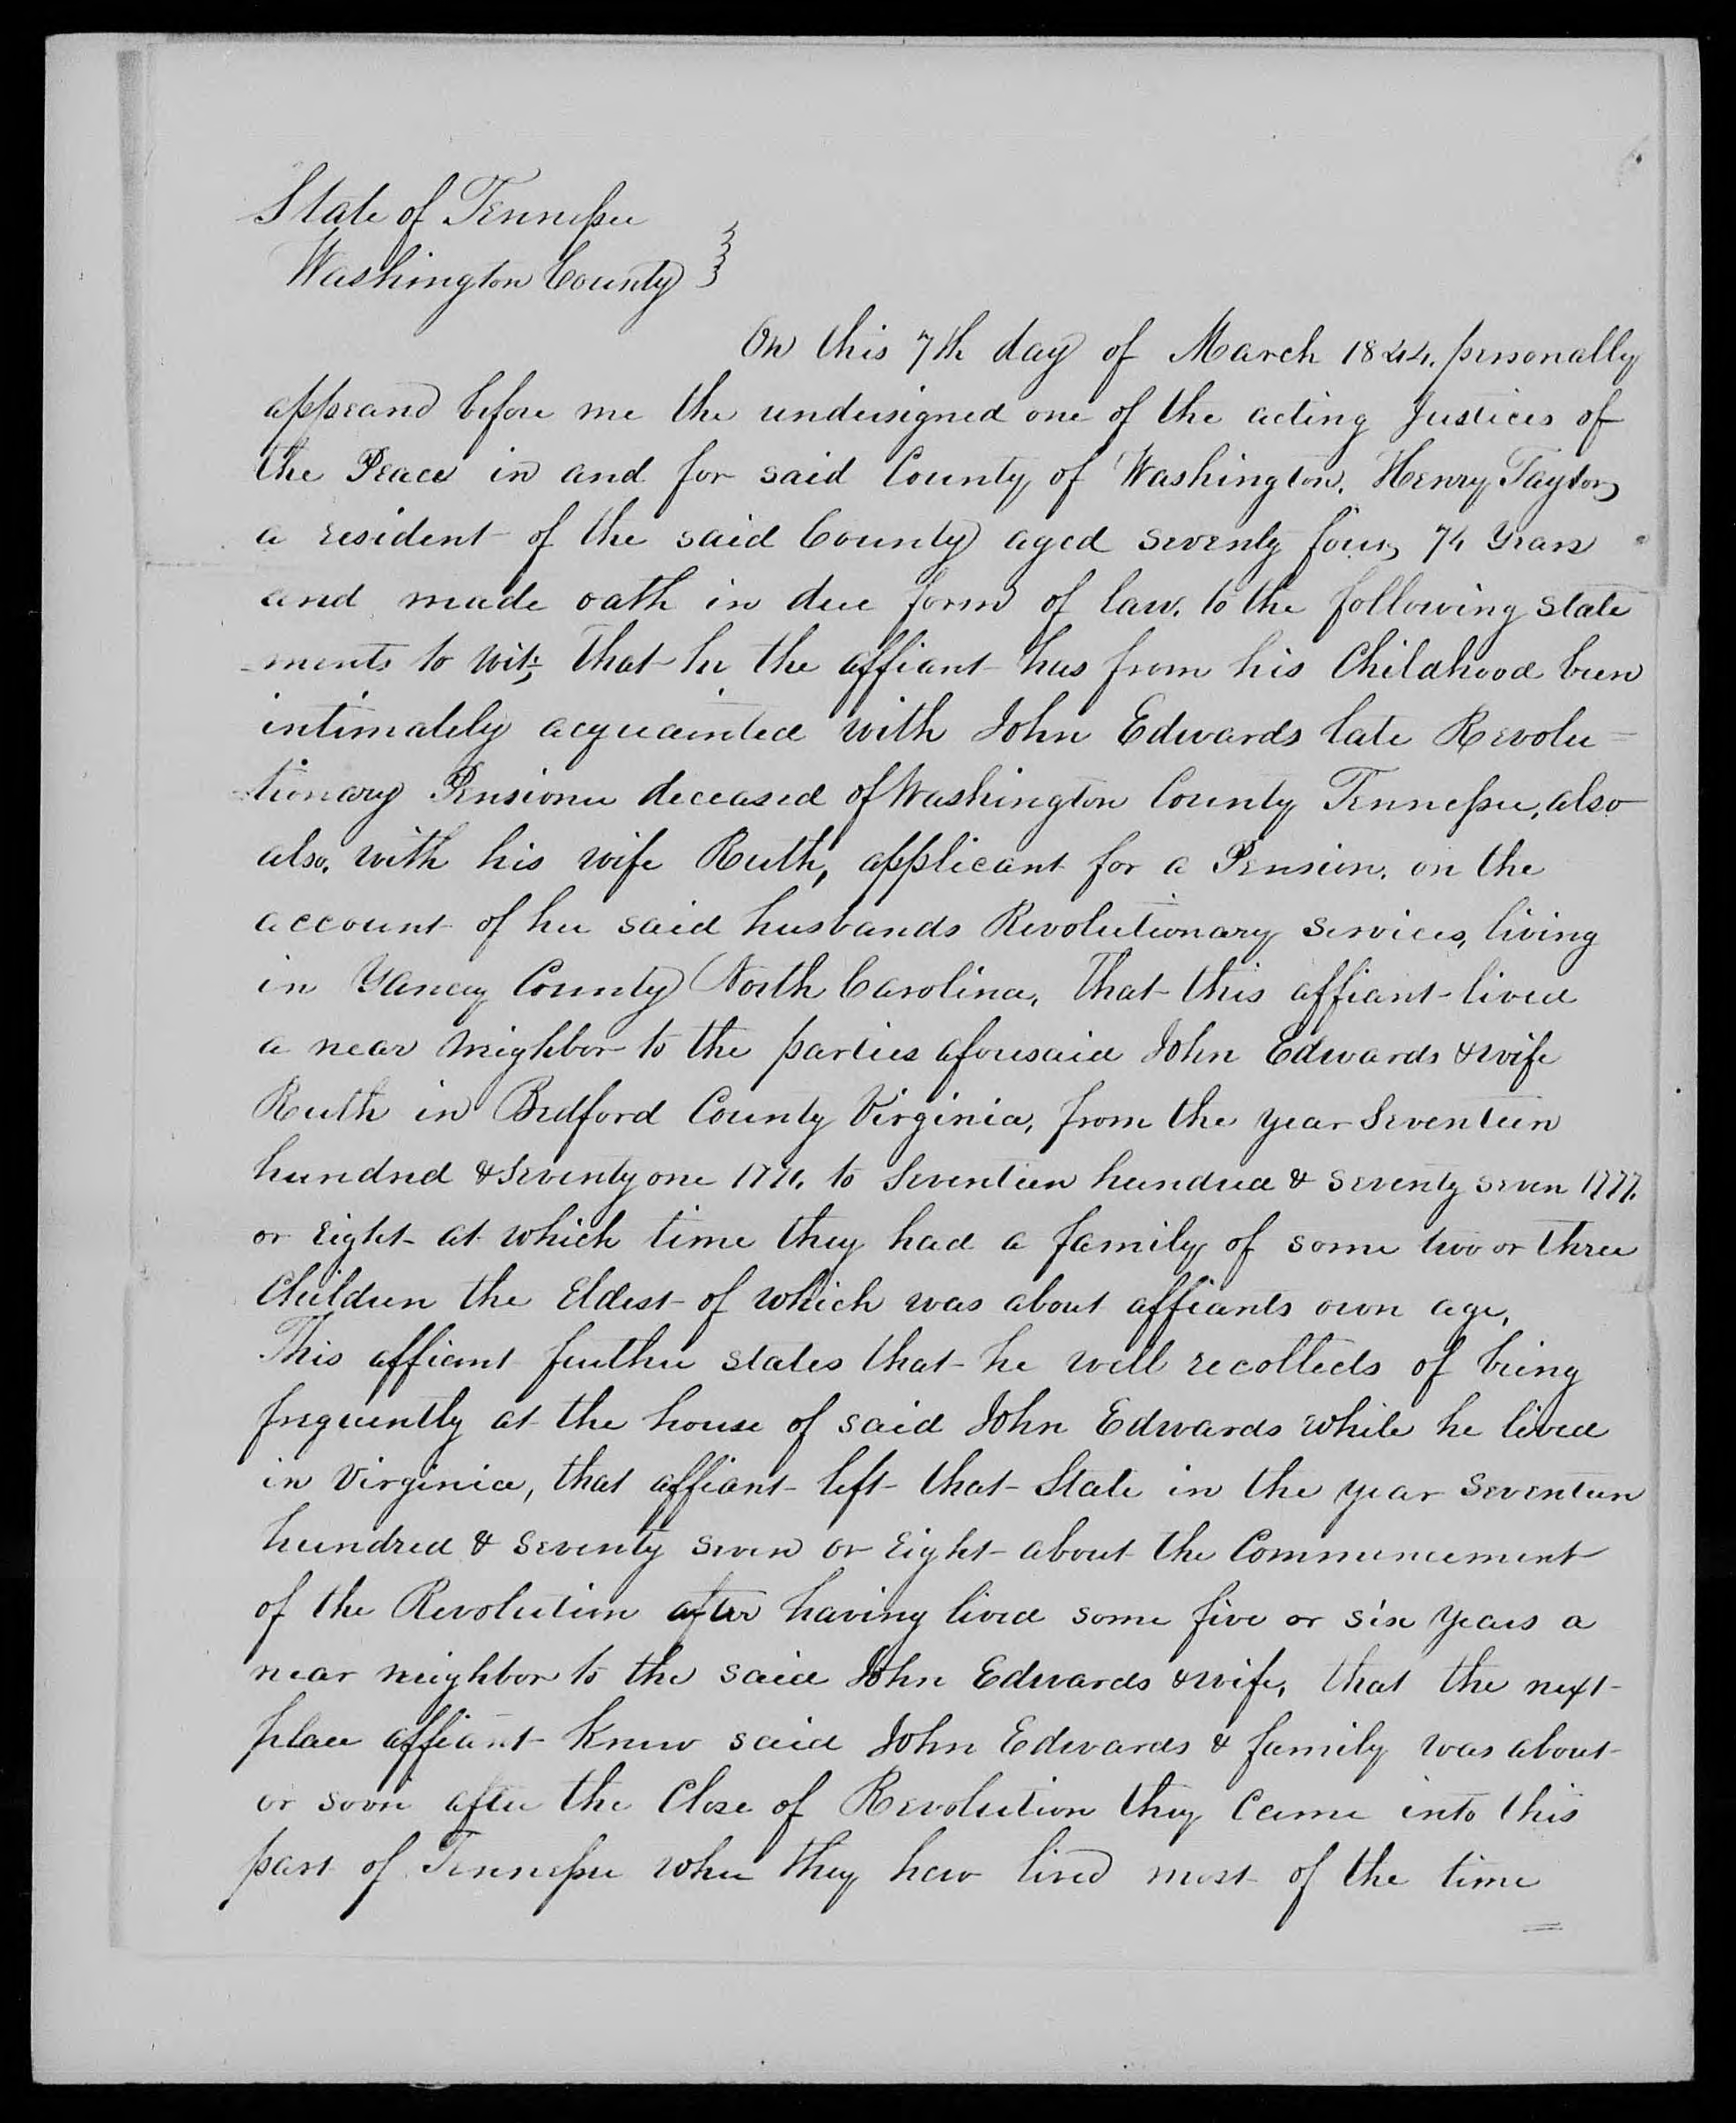 State of Tennessee
Washington County
On this 7th day of March 1844. personally
appeared before me the undersigned one of the acting Justices of
the Peace in and for said County of Washington. Henry Taylor
a resident of the said County aged seventy four 74 Years
and made oath in due form of law. to the following state
-ments to wit; That he the affiant has from his Childhood been
intimately acquainted with John Edwards late Revolu=
-tionary Pensioner deceased of Washington County Tennessee, also
also, with his wife Ruth, applicant for a Pension. on the
account of her said husbands Revolutionary Services, living
in Yancey County North Carolina, That this affiant lived
a near neighbor to the parties aforesaid John Edwards & wife
Ruth in Bedford County Virginia, from the year Seventeen
hundred & Seventy one 1771. to Seventeen hundred & Seventy seven 1777.
or Eight at which time they had a family of some two or three
Children the Eldest of which was about affiants own age,
This affiant further states that he well recollects of being
frequently at the house of said John Edwards while he lived
in Virginia, that affiant left that State in the year Seventeen
hundred & Seventy seven or Eight about the Commencement
of the Revolution after having lived some five or six Years a
near neighbor to the said John Edwards & wife, that the next
place affiant knew said John Edwards & family was about
or soon after the Close of Revolution they came into this
part of Tennessee wher they hav lived most of the time